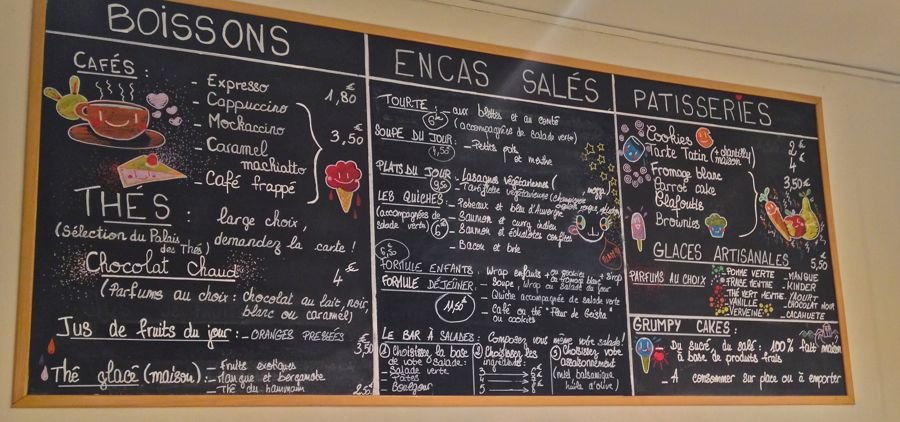 BOISSONS
CAFÉS :
- Expresso 1,80 €
- Cappuccino
- Mochaccino
- Caramel
machiatto
- Café frappé
3,50 €
THÉS :
(Sélection du Palais
des Thés)
large choix,
demandez la carte !
Chocolat Chaud 4 €
(Parfums au choix : chocolat au lait, noir,
blanc ou caramel)
Jus de fruits du jour : - ORANGES PRESSÉES
3,50
Thé glacé (maison) : - Fruits exotiques
- Mangue et bergamote
- Thé du hammam
ENCAS SALÉS
TOURTE : - aux blettes et au comté
(accompagnée de salade verte)
SOUPE DU JOUR : - Petits pois
et menthe
PLATS DU JOUR - Lasagnes végétariennes
9,50 - Tartiflette végétarienne
LES QUICHES : - Poireaux et bleu d'Auvergne
(accompagnées de - Saumon et curry indien
salade verte) - Saumon et échalotes confites
- Bacon et brie
FORMULE ENFANTS : Wrap enfants + cookies
FORMULE DÉJEUNER : - Soupe, wrap ou salade du jour
11,50 - Quiche accompagnée de salade verte
- Café ou thé "Fleur de Geisha"
ou cookies
LE BAR À SALADES : Composez vous même votre salade !
1 Choisissez la base
de votre salade :
- Salade verte
- Pâtes
- Boulgour
2 Choisissez les
ingrédients :
3
4
5
3 Choisissez votre
assaisonnement
(miel balsamique
huile d'olive)
PATISSERIES
Cookies 2 €
Tarte Tatin (+ chantilly
maison) 4 €
Fromage blanc 3,50 €
Carrot cake
Clafoutis
Brownies
GLACES ARTISANALES
5,50
PARFUMS AU CHOIX
POMME VERTE
FRAISE MENTHE
THÉ VERT MENTHE
VANILLE
VERVEINE
- MANGUE
- KINDER
- YAOURT
- CHOCOLAT NOIR
- CACAHUETE
GRUMPY CAKES :
- Du sucré, du salé : 100% fait maison
à base de produits frais
- À consommer sur place ou à emporter